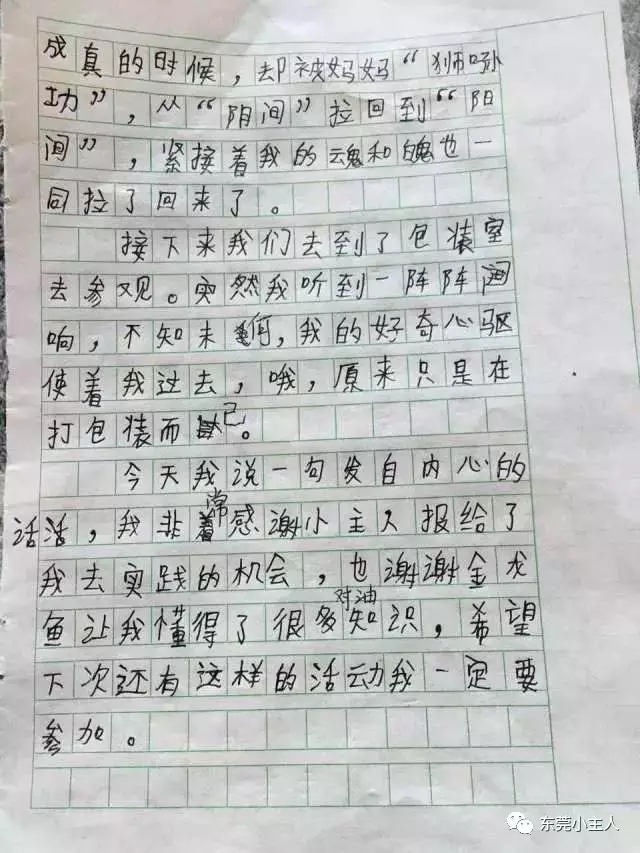 成真的时候，却被妈妈“狮吼
功”，从“阴间”拉回到“阳
间”，紧接着我的魂和魄也一
同拉了回来了。
接下来我们去到了包装室
去参观。突然我听到一阵阵
响，不知未何，我的好奇心驱
使着我过去，哦，原来只是在
打包装而已。
今天我说一句发自内心的
话活，我非常感谢小主人报给了
我去实践的机会，也谢谢金龙
鱼让我懂得了很多对油知识，希望
下次还有这样的活动我一定要
参加。
东莞小主人